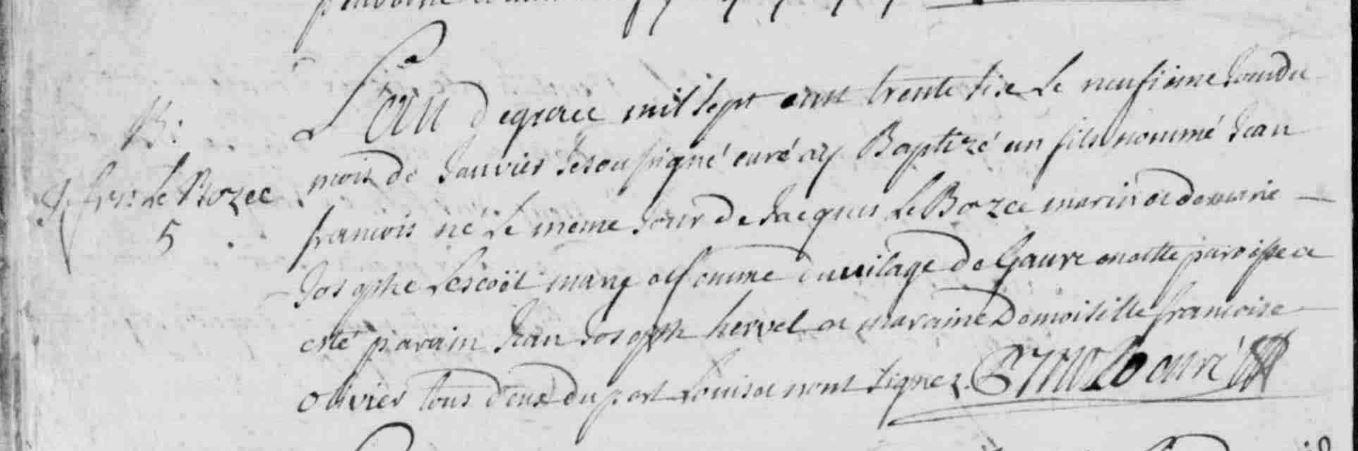 B:
J. frs: Le Bozec
5
L'an de grace mil sept cent trente six le neufieme Jour du
mois de Janvier Je soussigné curé ay Baptizé un fils nommé Jean
francois né le meme Jour de Jacques Le Bozec marin et de marie
Josephe Lescoët mary et femme du vilage de Gavre en cette paroisse a
esté parain Jean Joseph hervel et maraine Demoiselle francoise
olivier tous deux du port Louis et n'ont signez. curé